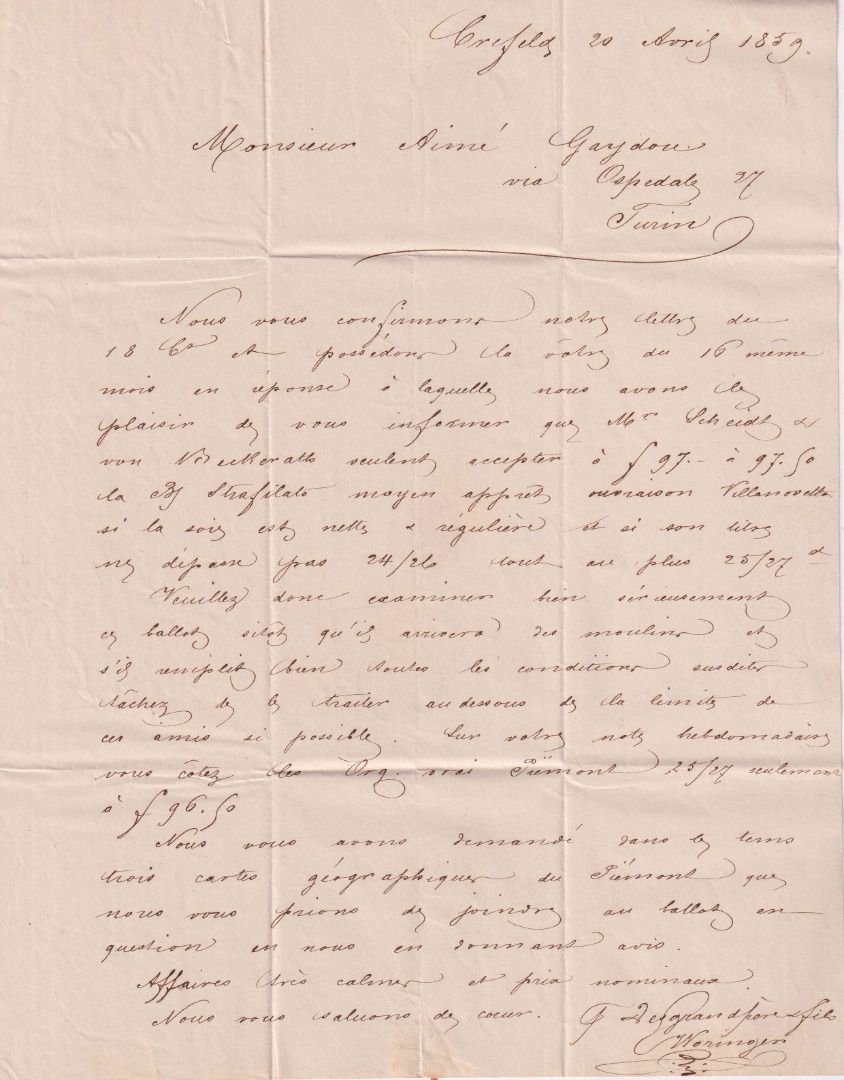 Crefeld 20 Avril 1859.
Monsieur Aimé Gaydou
via Ospedale 27
Turin
Nous vous confirmons notre lettre du
18 Ct et possédons la vôtre du 16 même
mois en réponse à laquelle nous avons le
plaisir de vous informer que Mrs Scheidt &
von Beckerath veulent accepter à f 97.- à 97.50
la Strafilato moyen apprêt ouvraison Villanovetta
si la soie est nette & régulière et si son titre
ne dépasse pas 24/26 tout au plus 25/27 d
Veuillez donc examiner bien sérieusement
ce ballot sitôt qu'il arrivera des moulins et
s'il remplit bien toutes les conditions susdites
tâchez de le traiter au dessous de la limite de
ces amis si possible. Sur votre note hebdomadaire
vous côtez les Org. vrai Piémont 25/27 seulement
à f 96.50
Nous vous avons demandé dans le tems
trois cartes géographiques du Piémont que
nous vous prions de joindre au ballot en
question en nous en donnant avis.
Affaires très calmes et prix nominaux.
Nous vous saluons de cœur. Desgrand père & fils
Woringer